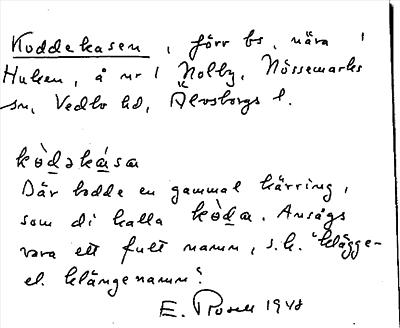 Koddekasen, förr bs, nära
Huken, å nr 1 Nolby, Nössemarks
sn, Vedbo hd, Älvsborgs l.
kòdəkása
Där bodde en gammal kärring,
som di kalla kòda. Ansågs
vara ett fult namn, s.k. "klägge-
el. klängenamn".
E. Rosell 1948